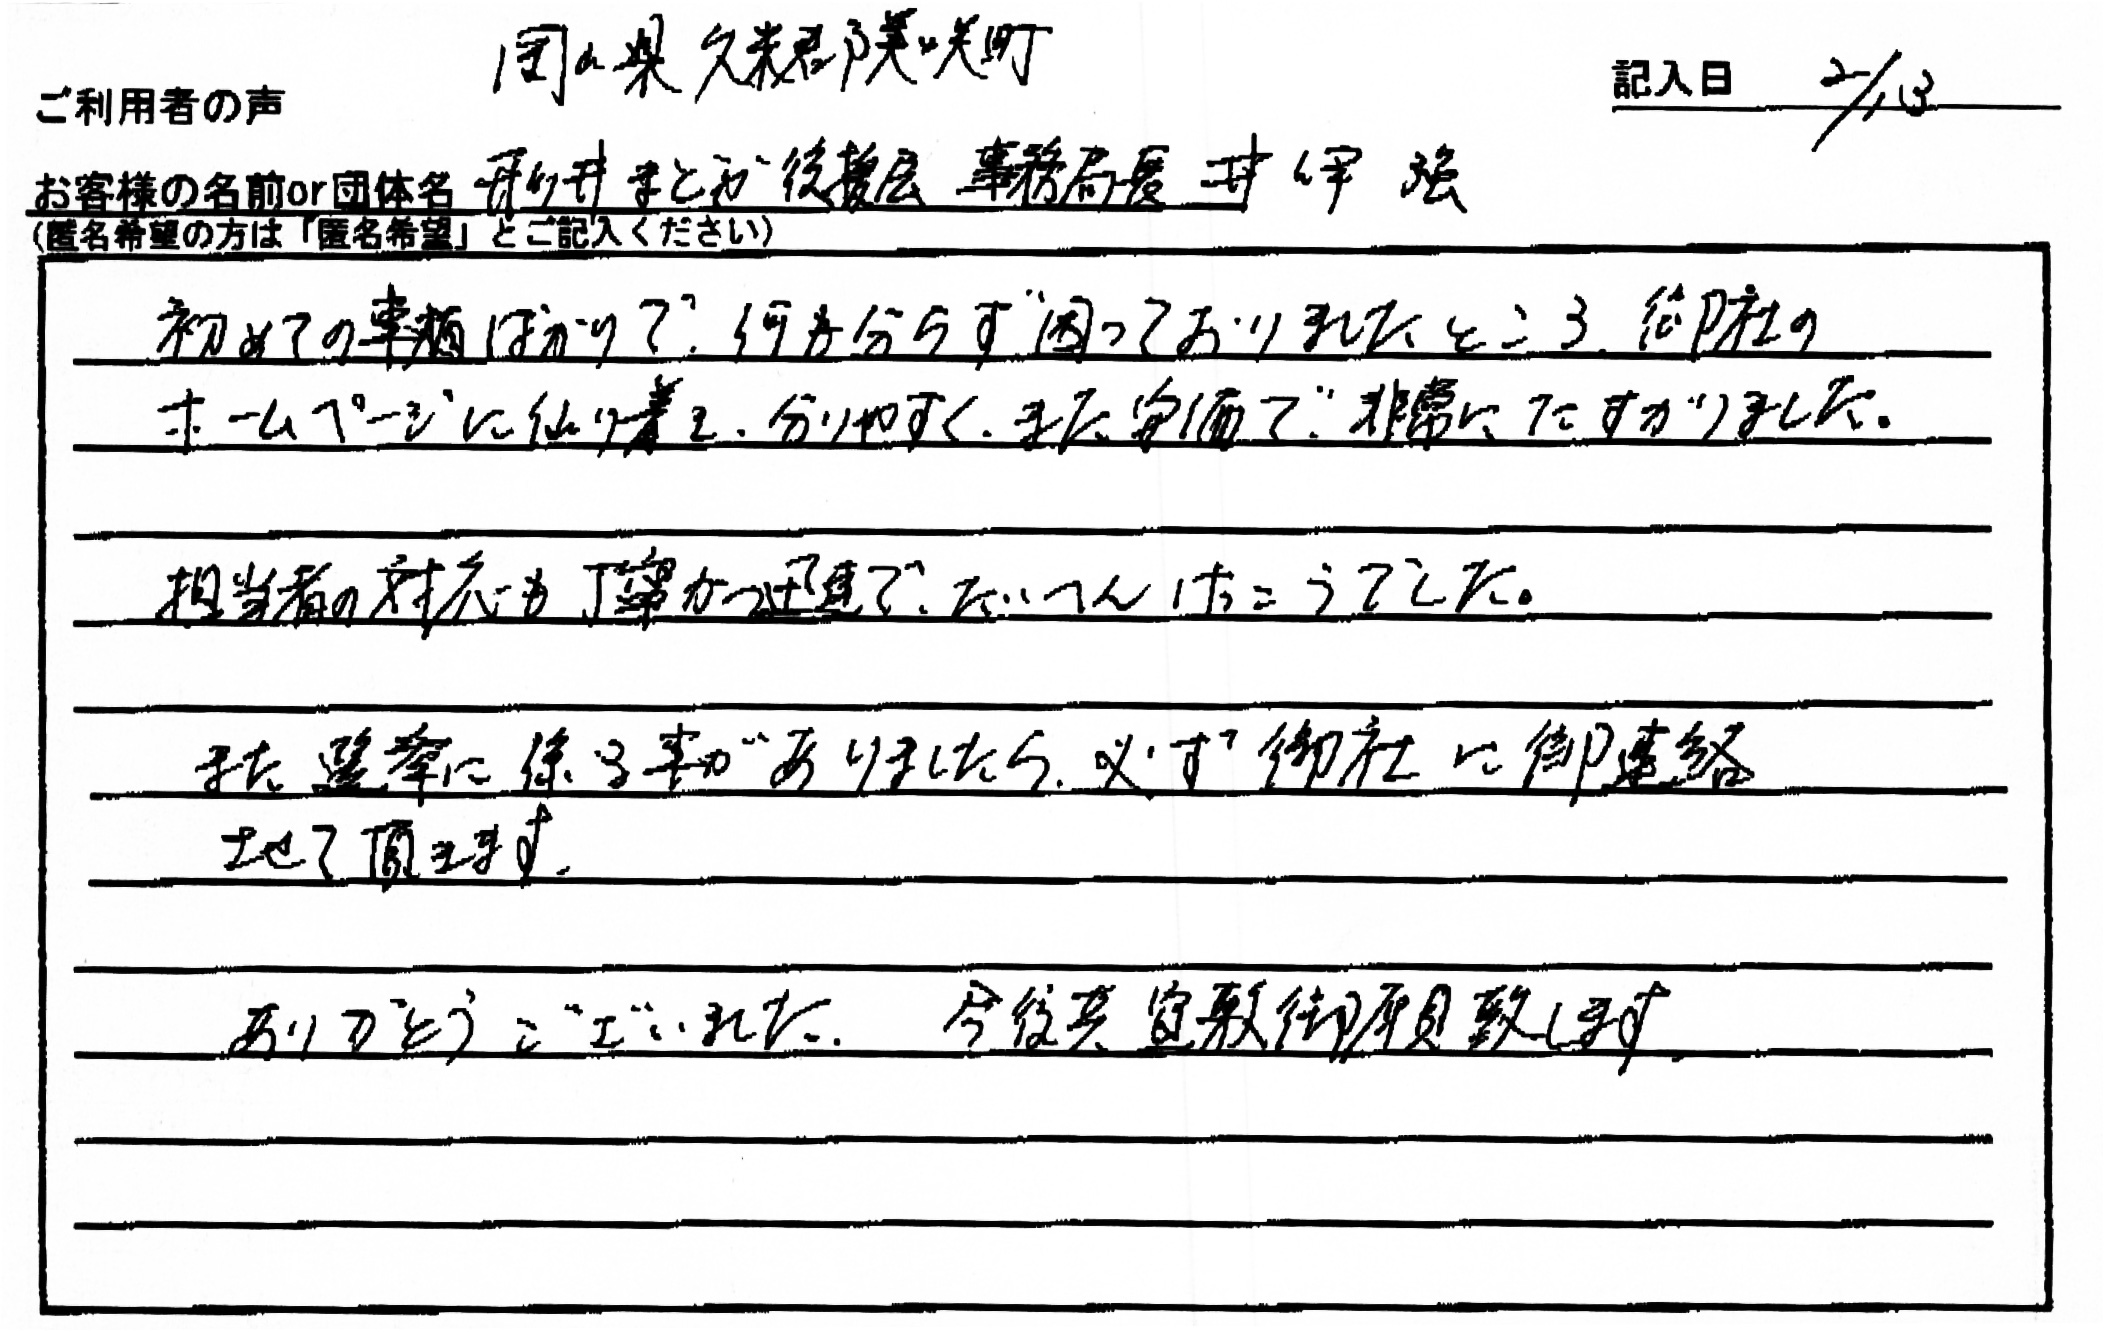 岡山県久米郡美咲町
記入日 2/13
ご利用者の声
お客様の名前or団体名 まどか後援会 事務局長 井伊 強
(匿名希望の方は「匿名希望」とご記入ください)
初めての事柄ばかりで、何も分らず困っておりましたところ、御社の
ホームページに辿り着き、分りやすく、また安価で非常にたすかりました。
担当者の対応も丁寧かつ迅速で、たいへんけっこうでした。
また選挙に係る事がありましたら、必ず御社に御連絡
させて頂きます。
ありがとうございました。 今後共宜敷御願致します